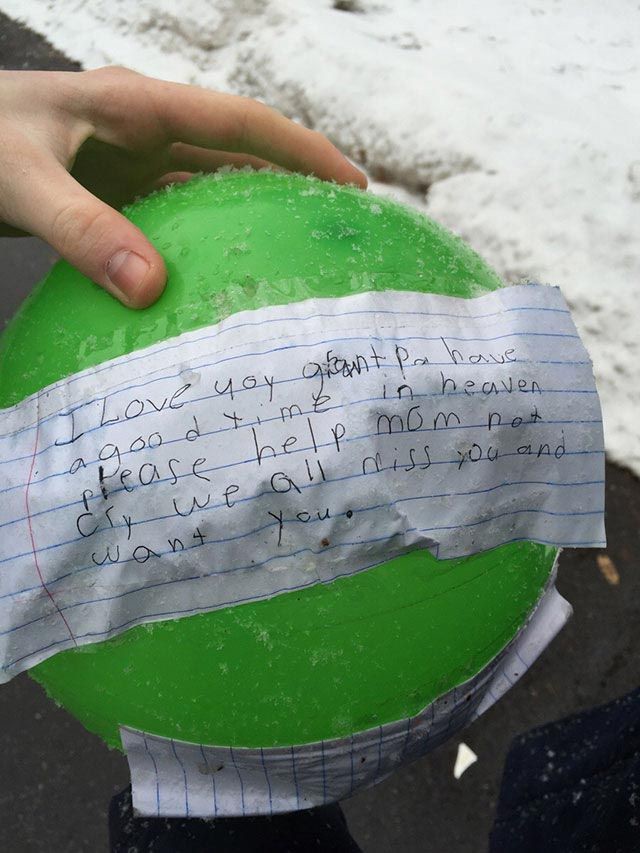 I Love yoy giantpa have
a good time in heaven
please help mom not
cry we all miss you and
want you.